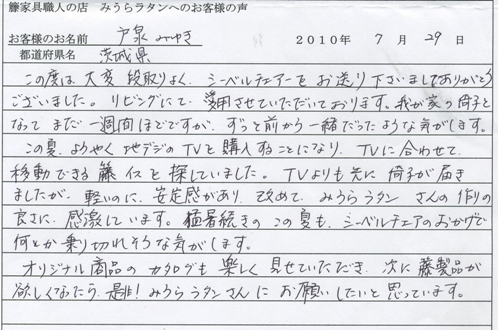 籐家具職人の店　みうらラタンへのお客様の声
お客様のお名前　戸泉 みゆき　2010年 7月 29日
都道府県名　茨城県
この度は大変段取りよく、シーベルチェアーをお送り下さいましてありがとう
ございました。リビングにて、愛用させていただいております。我が家の椅子と
なって まだ 一週間ほどですが、ずっと前から一緒だったような気がします。
この夏、ようやく地デジのTVを購入することになり、TVに合わせて、
移動できる籐イスを探していました。TVよりも先に椅子が届き
ましたが、軽いのに、安定感があり、改めて、みうらラタンさんの作りの
良さに、感激しています。猛暑続きの この夏も、シーベルチェアのおかげで
何とか乗り切れそうな気がします。
オリジナル商品のカタログも楽しく見せていただき、次に藤製品が
欲しくなったら、是非！みうらラタンさんにお願いしたいと思っています。